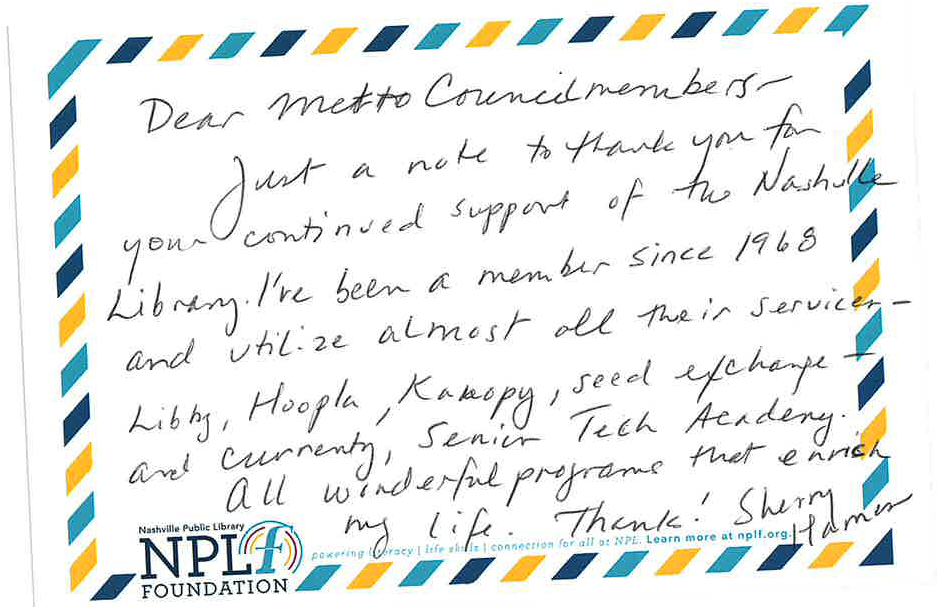 Dear Metto Councilmembers-
Just a note to thank you for
your continued support of the Nashville
Library. I've been a member since 1968
and utilize almost all their services-
Libby, Hoopla, Kanopy, seed exchange-
and currently, Senior Tech Academy.
All wonderful programs that enrich
my life. Thank! Sherry
Hamer
Nashville Public Library
NPLf
FOUNDATION
powering literacy | life skills | connection for all at NPL. Learn more at nplf.org.